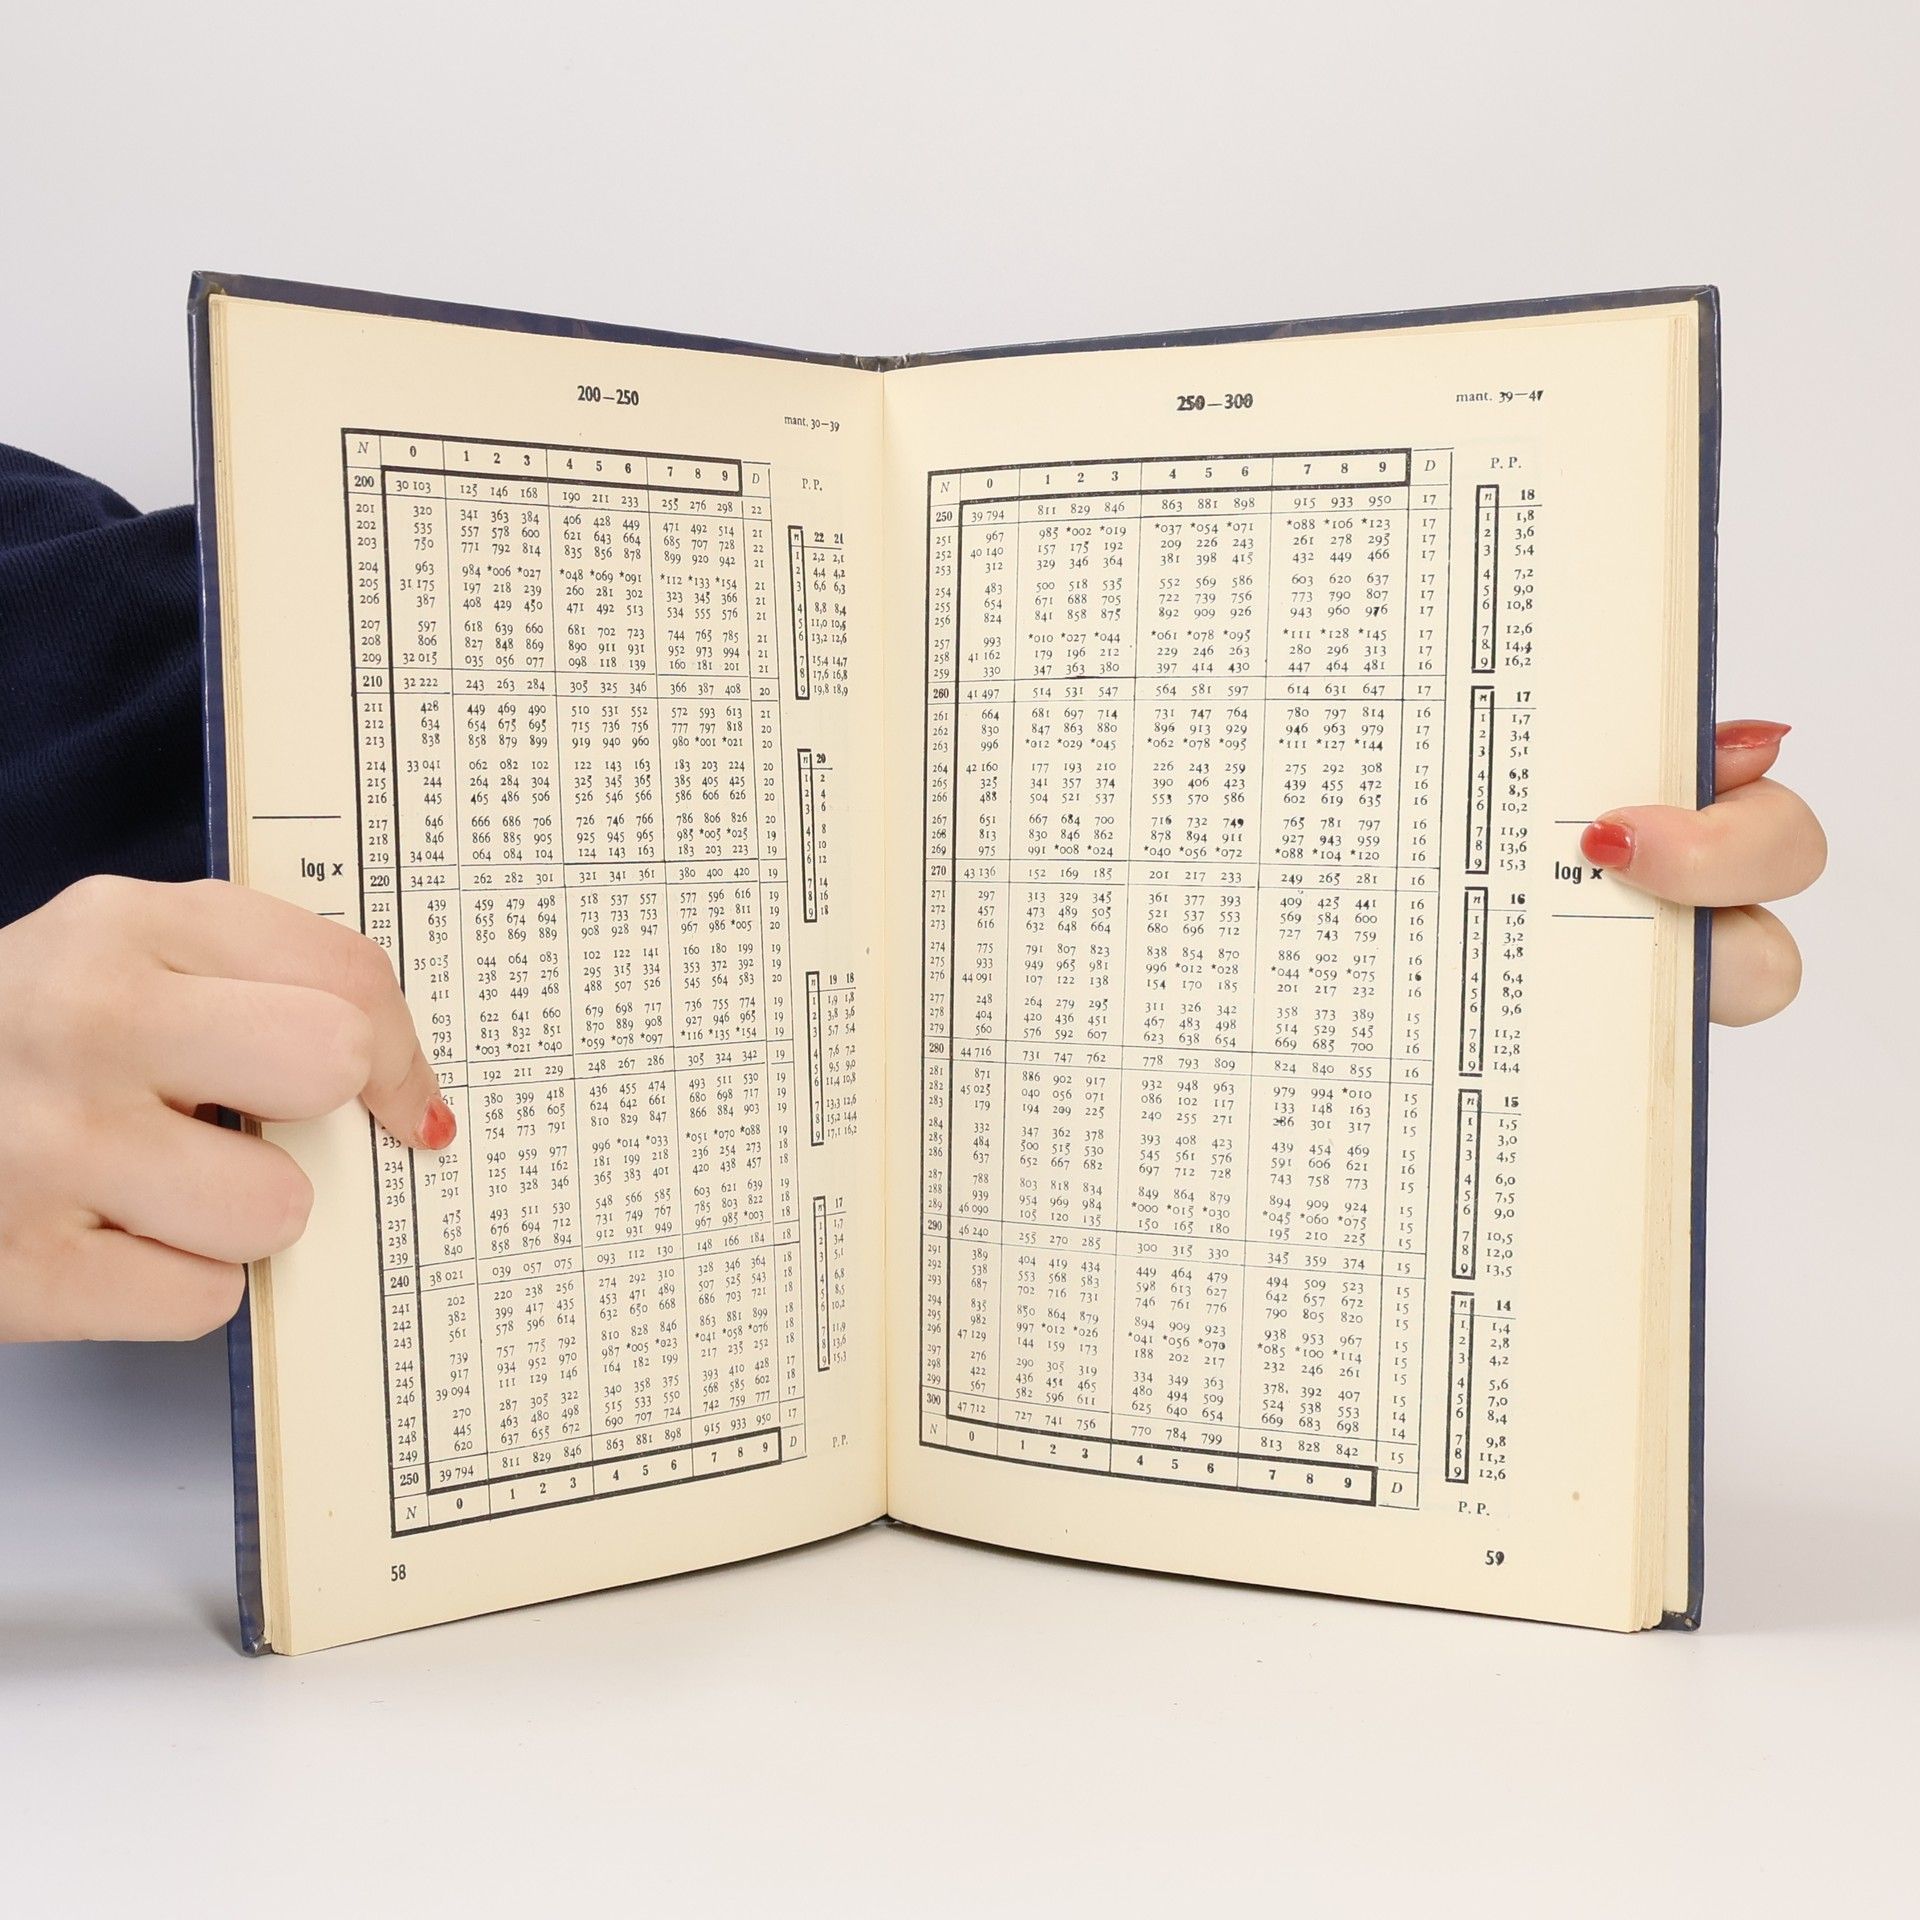 200—250
mant. 30—39
N 0 1 2 3 4 5 6 7 8 9 D
200 30 103 125 146 168 190 211 233 255 276 298 22
201 320 341 363 384 406 428 449 471 492 514 21
202 535 557 578 600 621 643 664 685 707 728 22
203 750 771 792 814 835 856 878 899 920 942 21
204 963 984 *006 *027 *048 *069 *091 *112 *133 *154 21
205 31 175 197 218 239 260 281 302 323 345 366 21
206 387 408 429 450 471 492 513 534 555 576 21
207 597 618 639 660 681 702 723 744 765 785 21
208 806 827 848 869 890 911 931 952 973 994 21
209 32 015 035 056 077 098 118 139 160 181 201 21
210 32 222 243 263 284 305 325 346 366 387 408 20
211 428 449 469 490 510 531 552 572 593 613 21
212 634 654 675 695 715 736 756 777 797 818 20
213 838 858 879 899 919 940 960 980 *001 *021 20
214 33 041 062 082 102 122 143 163 183 203 224 20
215 244 264 284 304 325 345 365 385 405 425 20
216 445 465 486 506 526 546 566 586 606 626 20
217 646 666 686 706 726 746 766 786 806 826 20
218 846 866 885 905 925 945 965 985 *005 *025 19
219 34 044 064 084 104 124 143 163 183 203 223 19
220 34 242 262 282 301 321 341 361 380 400 420 19
221 439 459 479 498 518 537 557 577 596 616 19
222 635 655 674 694 713 733 753 772 792 811 19
223 830 850 869 889 908 928 947 967 986 *005 20
35 025 044 064 083 102 122 141 160 180 199 19
218 238 257 276 295 315 334 353 372 392 19
411 430 449 468 488 507 526 545 564 583 20
603 622 641 660 679 698 717 736 755 774 19
793 813 832 851 870 889 908 927 946 965 19
984 *003 *021 *040 *059 *078 *097 *116 *135 *154 19
173 192 211 229 248 267 286 305 324 342 19
61 380 399 418 436 455 474 493 511 530 19
568 586 605 624 642 661 680 698 717 19
754 773 791 810 829 847 866 884 903 19
234 922 940 959 977 996 *014 *033 *051 *070 *088 19
235 37 107 125 144 162 181 199 218 236 254 273 18
236 291 310 328 346 365 383 401 420 438 457 18
237 475 493 511 530 548 566 585 603 621 639 19
238 658 676 694 712 731 749 767 785 803 822 18
239 840 858 876 894 912 931 949 967 985 *003 18
240 38 021 039 057 075 093 112 130 148 166 184 18
241 202 220 238 256 274 292 310 328 346 364 18
242 382 399 417 435 453 471 489 507 525 543 18
243 561 578 596 614 632 650 668 686 703 721 18
244 739 757 775 792 810 828 846 863 881 899 18
245 917 934 952 970 987 *005 *023 *041 *058 *076 18
246 39 094 111 129 146 164 182 199 217 235 252 18
247 270 287 305 322 340 358 375 393 410 428 17
248 445 463 480 498 515 533 550 568 585 602 18
249 620 637 655 672 690 707 724 742 759 777 17
250 39 794 811 829 846 863 881 898 915 933 950 17
N 0 1 2 3 4 5 6 7 8 9 D
P.P.
n 22 21
1 2,2 2,1
2 4,4 4,2
3 6,6 6,3
4 8,8 8,4
5 11,0 10,5
6 13,2 12,6
7 15,4 14,7
8 17,6 16,8
9 19,8 18,9
n 20
1 2
2 4
3 6
4 8
5 10
6 12
7 14
8 16
9 18
n 19 18
1 1,9 1,8
2 3,8 3,6
3 5,7 5,4
4 7,6 7,2
5 9,5 9,0
6 11,4 10,8
7 13,3 12,6
8 15,2 14,4
9 17,1 16,2
n 17
1 1,7
2 3,4
3 5,1
4 6,8
5 8,5
6 10,2
7 11,9
8 13,6
9 15,3
P.P.
log x
58
250—300
mant. 39—47
N 0 1 2 3 4 5 6 7 8 9 D
250 39 794 811 829 846 863 881 898 915 933 950 17
251 967 985 *002 *019 *037 *054 *071 *088 *106 *123 17
252 40 140 157 175 192 209 226 243 261 278 295 17
253 312 329 346 364 381 398 415 432 449 466 17
254 483 500 518 535 552 569 586 603 620 637 17
255 654 671 688 705 722 739 756 773 790 807 17
256 824 841 858 875 892 909 926 943 960 976 17
257 993 *010 *027 *044 *061 *078 *095 *111 *128 *145 17
258 41 162 179 196 212 229 246 263 280 296 313 17
259 330 347 363 380 397 414 430 447 464 481 16
260 41 497 514 531 547 564 581 597 614 631 647 17
261 664 681 697 714 731 747 764 780 797 814 16
262 830 847 863 880 896 913 929 946 963 979 17
263 996 *012 *029 *045 *062 *078 *095 *111 *127 *144 16
264 42 160 177 193 210 226 243 259 275 292 308 17
265 325 341 357 374 390 406 423 439 455 472 16
266 488 504 521 537 553 570 586 602 619 635 16
267 651 667 684 700 716 732 749 765 781 797 16
268 813 830 846 862 878 894 911 927 943 959 16
269 975 991 *008 *024 *040 *056 *072 *088 *104 *120 16
270 43 136 152 169 185 201 217 233 249 265 281 16
271 297 313 329 345 361 377 393 409 425 441 16
272 457 473 489 505 521 537 553 569 584 600 16
273 616 632 648 664 680 696 712 727 743 759 16
274 775 791 807 823 838 854 870 886 902 917 16
275 933 949 965 981 996 *012 *028 *044 *059 *075 16
276 44 091 107 122 138 154 170 185 201 217 232 16
277 248 264 279 295 311 326 342 358 373 389 15
278 404 420 436 451 467 483 498 514 529 545 15
279 560 576 592 607 623 638 654 669 685 700 16
280 44 716 731 747 762 778 793 809 824 840 855 16
281 871 886 902 917 932 948 963 979 994 *010 15
282 45 025 040 056 071 086 102 117 133 148 163 16
283 179 194 209 225 240 255 271 286 301 317 15
284 332 347 362 378 393 408 423 439 454 469 15
285 484 500 515 530 545 561 576 591 606 621 16
286 637 652 667 682 697 712 728 743 758 773 15
287 788 803 818 834 849 864 879 894 909 924 15
288 939 954 969 984 *000 *015 *030 *045 *060 *075 15
289 46 090 105 120 135 150 165 180 195 210 225 15
290 46 240 255 270 285 300 315 330 345 359 374 15
291 389 404 419 434 449 464 479 494 509 523 15
292 538 553 568 583 598 613 627 642 657 672 15
293 687 702 716 731 746 761 776 790 805 820 15
294 835 850 864 879 894 909 923 938 953 967 15
295 982 997 *012 *026 *041 *056 *070 *085 *100 *114 15
296 47 129 144 159 173 188 202 217 232 246 261 15
297 276 290 305 319 334 349 363 378 392 407 15
298 422 436 451 465 480 494 509 524 538 553 14
299 567 582 596 611 625 640 654 669 683 698 14
300 47 712 727 741 756 770 784 799 813 828 842 15
N 0 1 2 3 4 5 6 7 8 9 D
P. P.
n 18
1 1,8
2 3,6
3 5,4
4 7,2
5 9,0
6 10,8
7 12,6
8 14,4
9 16,2
n 17
1 1,7
2 3,4
3 5,1
4 6,8
5 8,5
6 10,2
7 11,9
8 13,6
9 15,3
n 16
1 1,6
2 3,2
3 4,8
4 6,4
5 8,0
6 9,6
7 11,2
8 12,8
9 14,4
n 15
1 1,5
2 3,0
3 4,5
4 6,0
5 7,5
6 9,0
7 10,5
8 12,0
9 13,5
n 14
1 1,4
2 2,8
3 4,2
4 5,6
5 7,0
6 8,4
7 9,8
8 11,2
9 12,6
P. P.
log x
59